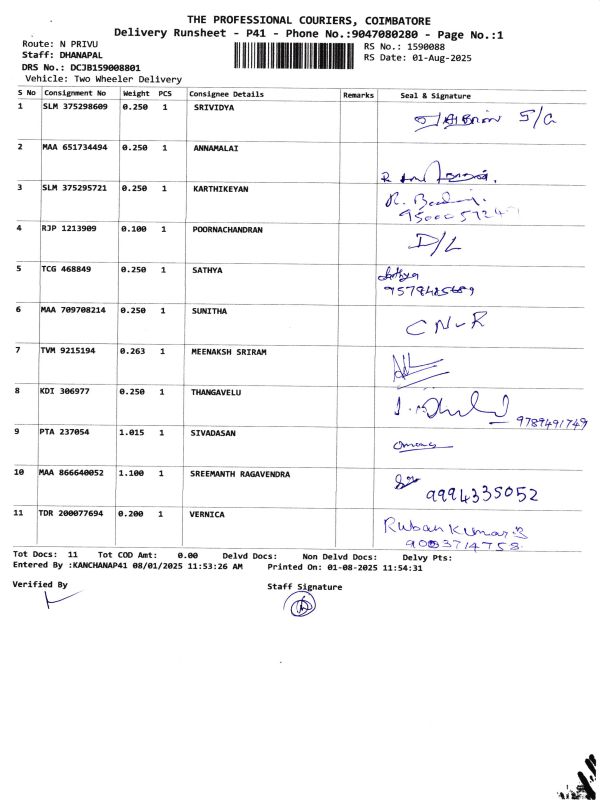 THE PROFESSIONAL COURIERS, COIMBATORE
Delivery Runsheet - P41 - Phone No.:9047080280 - Page No.:1
Route: N PRIVU
RS No.: 1590088
Staff: DHANAPAL
RS Date: 01-Aug-2025
DRS No.: DCJB159008801
Vehicle: Two Wheeler Delivery
S No Consignment No Weight PCS Consignee Details Remarks Seal & Signature
1 SLM 375298609 0.250 1 SRIVIDYA S/G
2 MAA 651734494 0.250 1 ANNAMALAI
3 SLM 375295721 0.250 1 KARTHIKEYAN
4 RJP 1213909 0.100 1 POORNACHANDRAN D/L
5 TCG 468849 0.250 1 SATHYA Sathya
6 MAA 709708214 0.250 1 SUNITHA CN-R
7 TVM 9215194 0.263 1 MEENAKSH SRIRAM
8 KDI 306977 0.250 1 THANGAVELU
9789491749
9 PTA 237054 1.015 1 SIVADASAN
10 MAA 866640052 1.100 1 SREEMANTH RAGAVENDRA
9994335052
11 TDR 200077694 0.200 1 VERNICA Ruban Kumar.S
9003714758
Tot Docs: 11 Tot COD Amt: 0.00 Delvd Docs: Non Delvd Docs: Delvy Pts:
Entered By :KANCHANAP41 08/01/2025 11:53:26 AM Printed On: 01-08-2025 11:54:31
Verified By Staff Signature